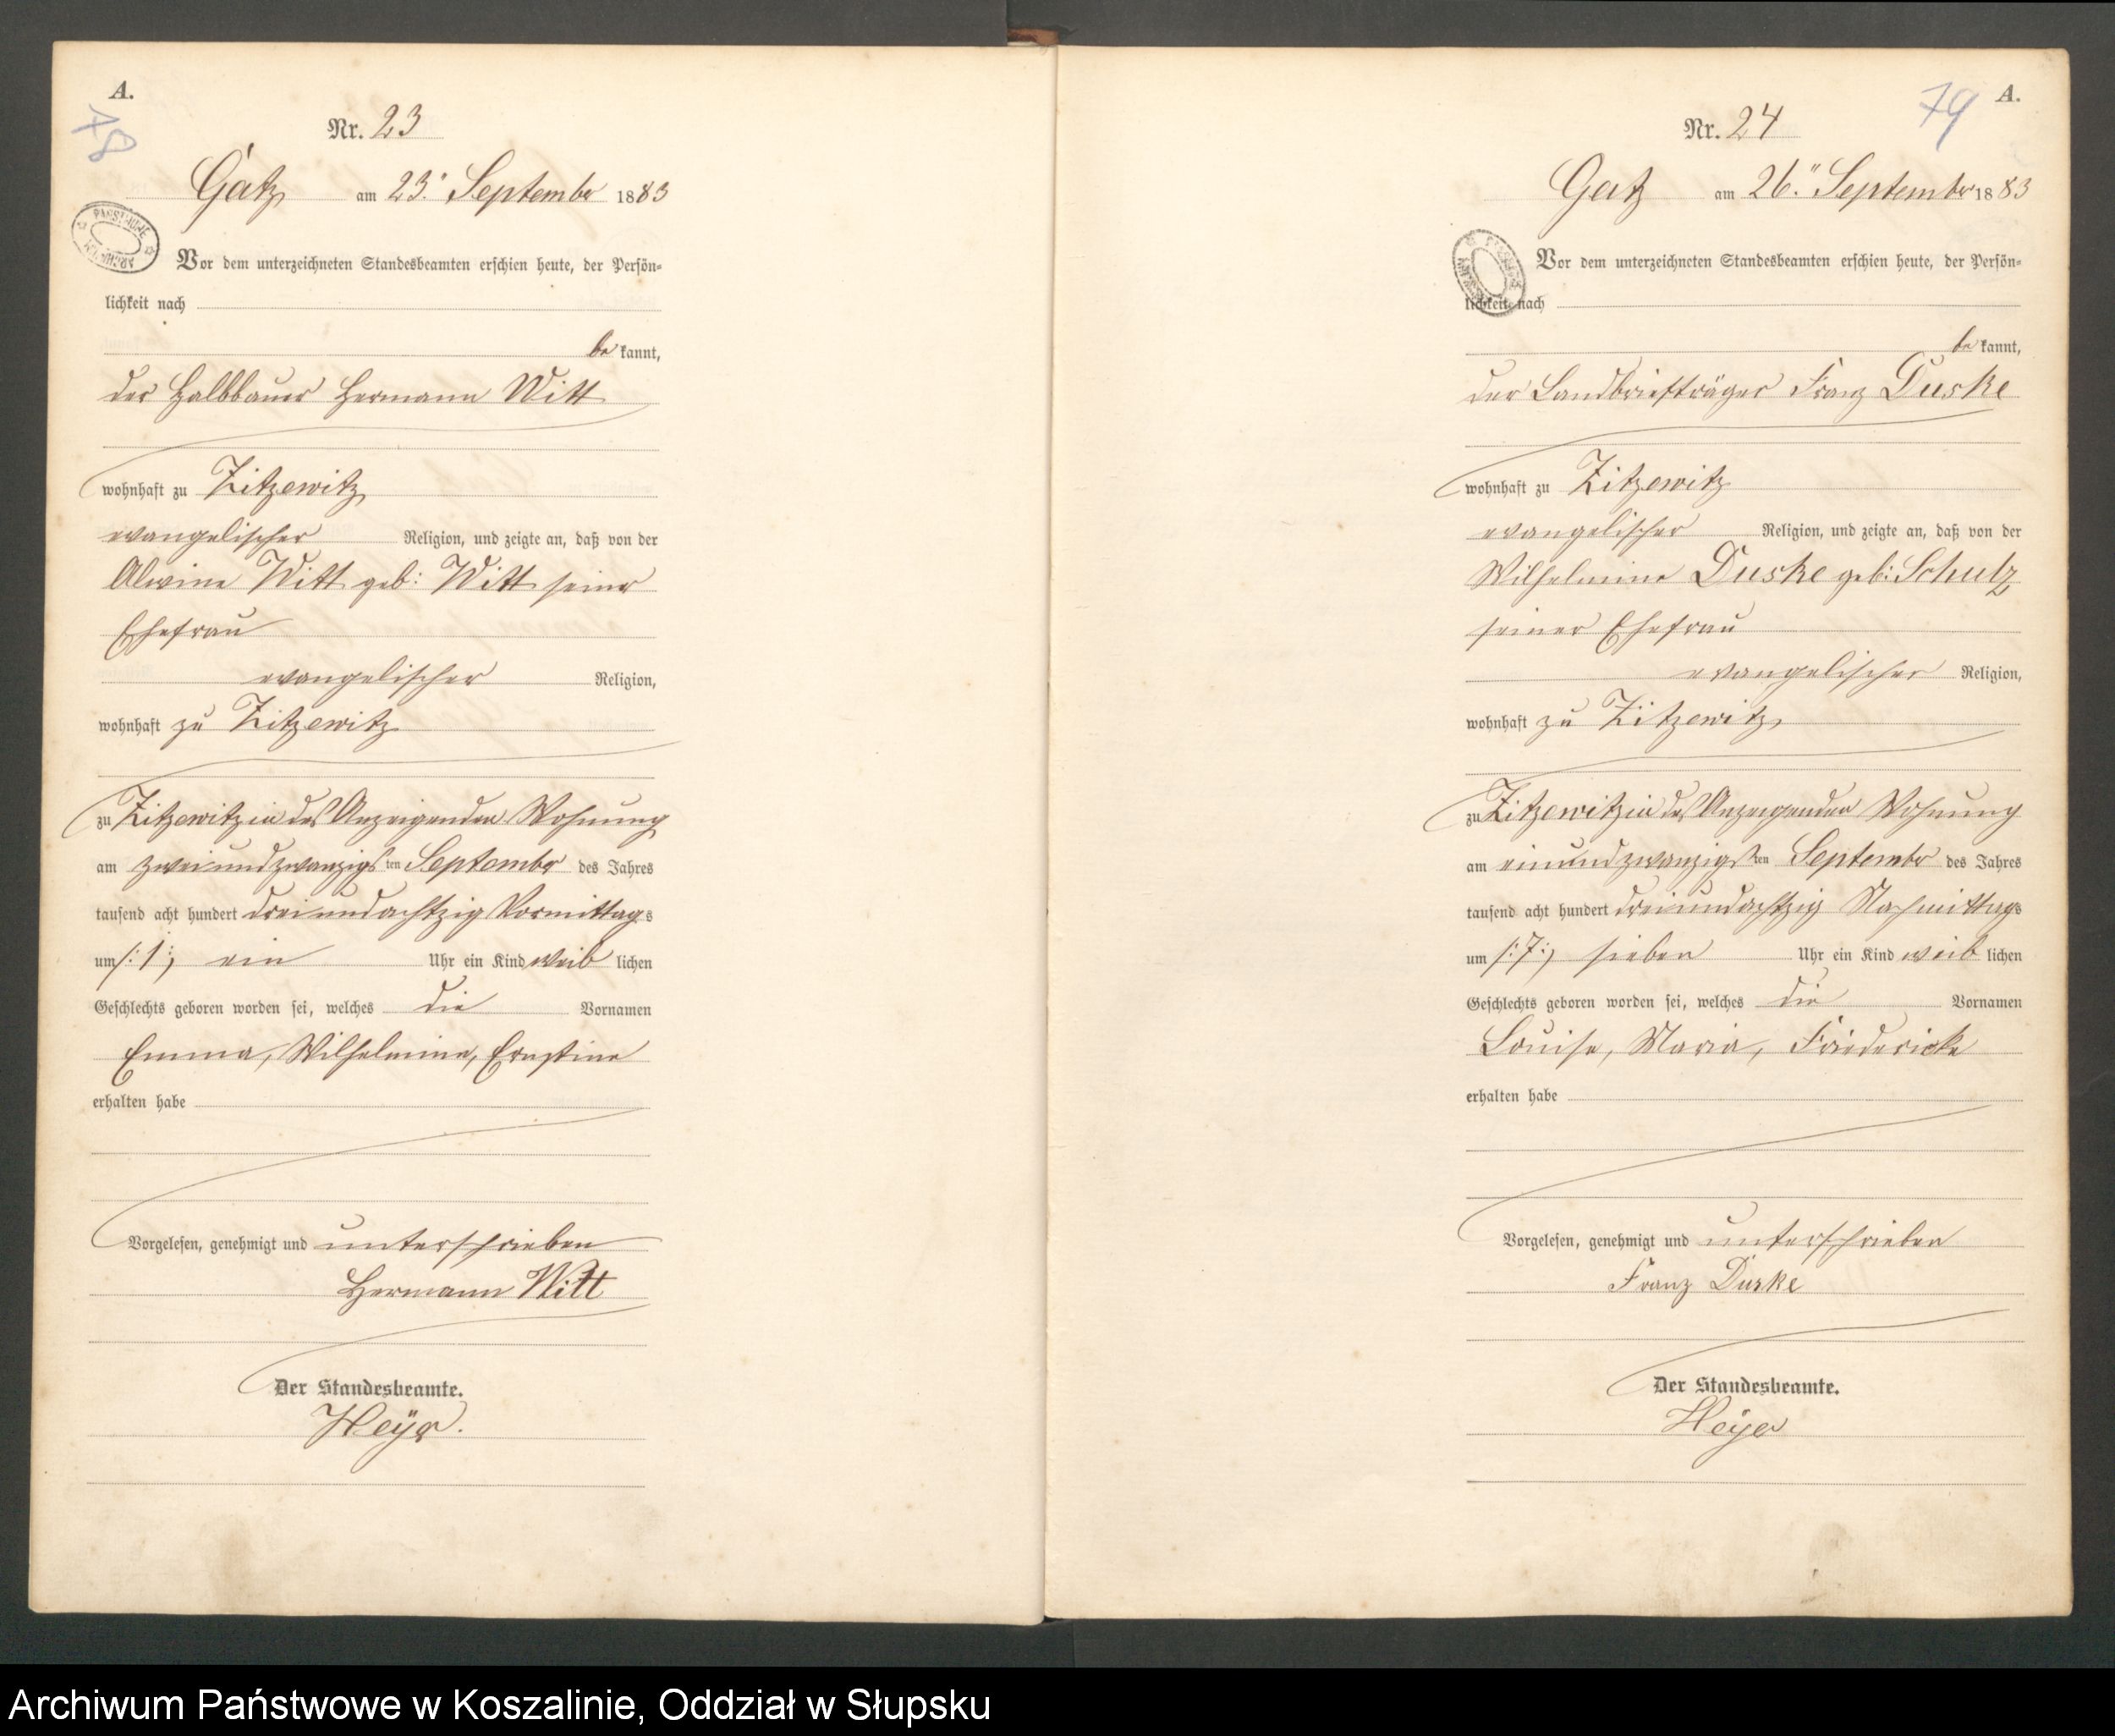 A.
78
Nr. 23
Gatz am 23. September 1883
Vor dem unterzeichneten Standesbeamten erschien heute, der Persön-
lichkeit nach
be kannt,
der Halbbauer Hermann Witt
wohnhaft zu Zitzewitz
evangelischer Religion, und zeigte an, daß von der
Alwine Witt geb: Witt seiner
Ehefrau
evangelischer Religion,
wohnhaft zu Zitzewitz
zu Zitzewitz in des Anzeigenden Wohnung
am zweiundzwanzigsten September des Jahres
tausend acht hundert dreiundachtzig Vormittags
um /:1:/ ein Uhr ein Kind weiblichen
Geschlechts geboren worden sei, welches die Vornamen
Emma, Wilhelmine, Ernstine
erhalten habe
Vorgelesen, genehmigt und unterschrieben
Hermann Witt
Der Standesbeamte.
Heyer.
79
A.
Nr. 24
Gatz am 26. September 1883
Vor dem unterzeichneten Standesbeamten erschien heute, der Persön-
lichkeit nach
be kannt,
der Landbriefträger Franz Duske
wohnhaft zu Zitzewitz
evangelischer Religion, und zeigte an, daß von der
Wilhelmine Duske geb: Schulz
seiner Ehefrau
evangelischer Religion,
wohnhaft zu Zitzewitz
zu Zitzewitz in des Anzeigenden Wohnung
am einundzwanzigsten September des Jahres
tausend acht hundert dreiundachtzig Nachmittags
um /:7:/ sieben Uhr ein Kind weiblichen
Geschlechts geboren worden sei, welches die Vornamen
Louise, Maria, Friedericke
erhalten habe
Vorgelesen, genehmigt und unterschrieben
Franz Duske
Der Standesbeamte.
Heyer
Archiwum Państwowe w Koszalinie, Oddział w Słupsku